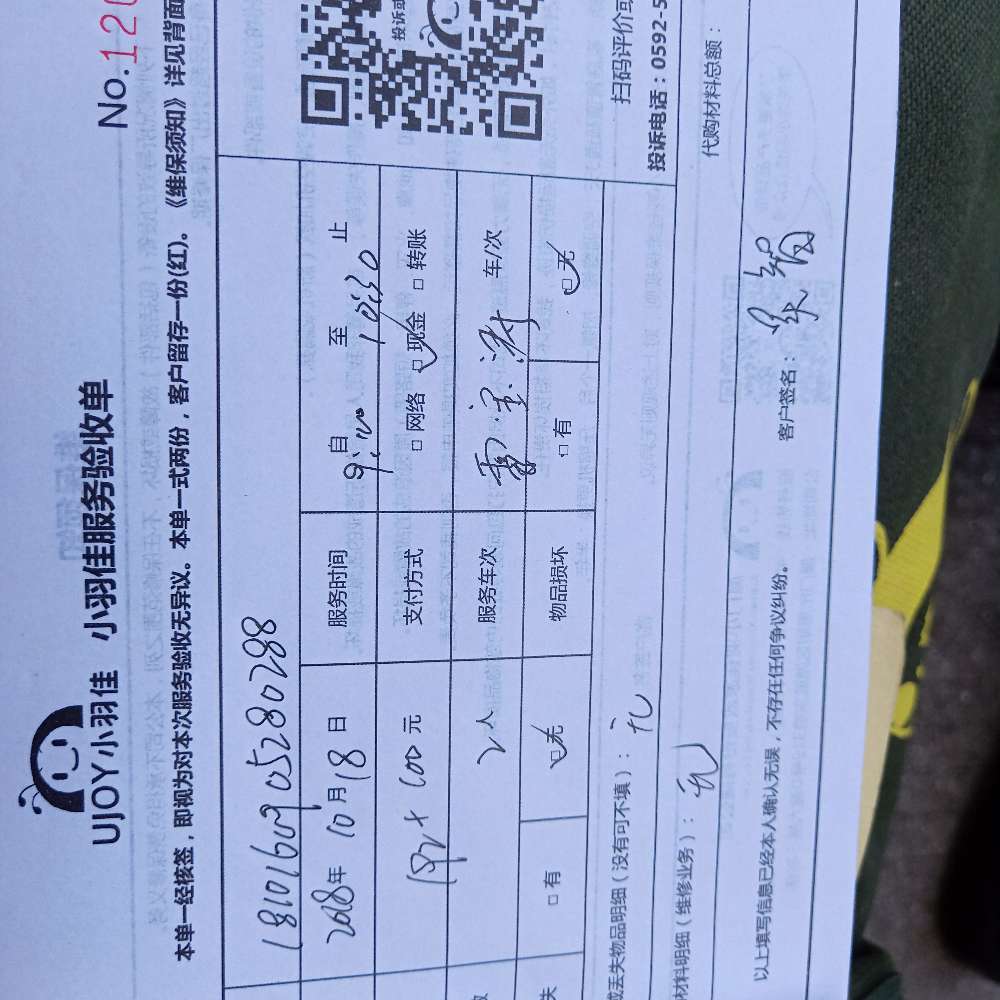 No.120
UJOY小羽佳 小羽佳服务验收单
本单一经核签，即视为对本次服务验收无异议。本单一式两份，客户留存一份(红)。《维保须知》详见背面
投诉或
扫码评价或
投诉电话：0592-5
1810160905280288
2018年10月18日 服务时间 自 至 止
9:00 10:30
元 支付方式 □网络 ☑现金 □转账
2人 服务车次 车/次
□有 ☑无 物品损坏 □有 ☑无
失
或丢失物品明细（没有可不填）：无
材料明细（维修业务）：无 代购材料总额：
以上填写信息已经本人确认无误，不存在任何争议纠纷。 客户签名：